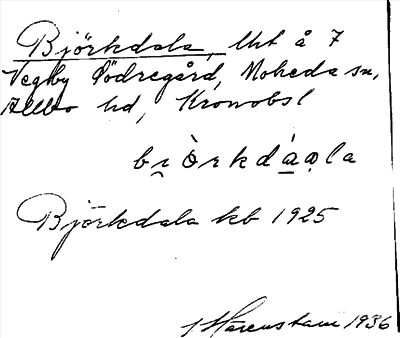 Björkdala, lht å 7
Vegby Södregård, Moheda sn,
Allbo hd, Kronobsl
bi̯ò̱rkdá̱a̱la
Björkdala kb 1925
Härenstam 1936